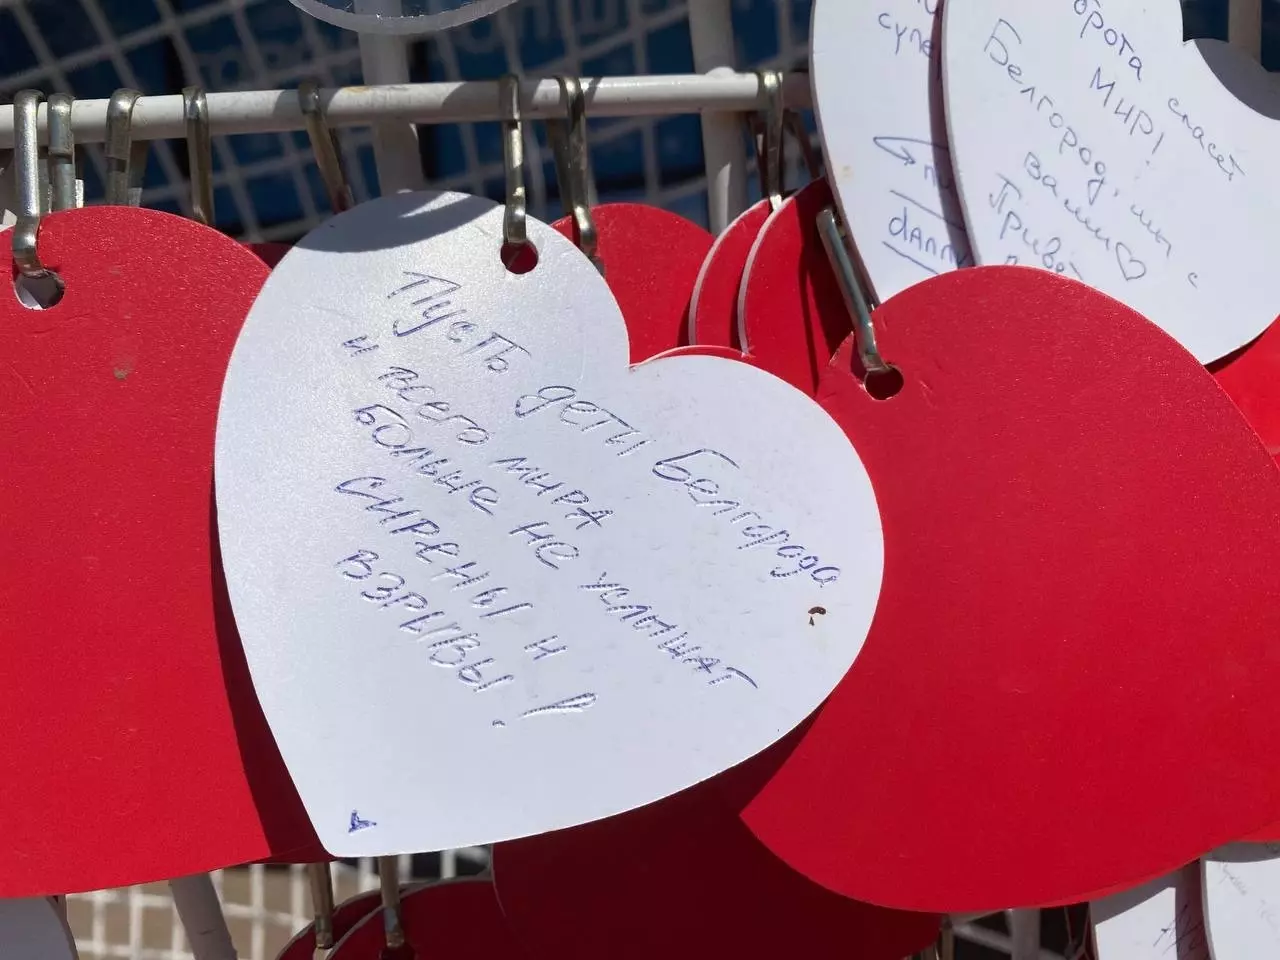 Пусть дети Белгорода
и всего мира
больше не услышат
СИРЕНЫ И
ВЗРЫВЫ!
оброта спасёт
МИР!
Белгород, мы с
вами♡
Привет